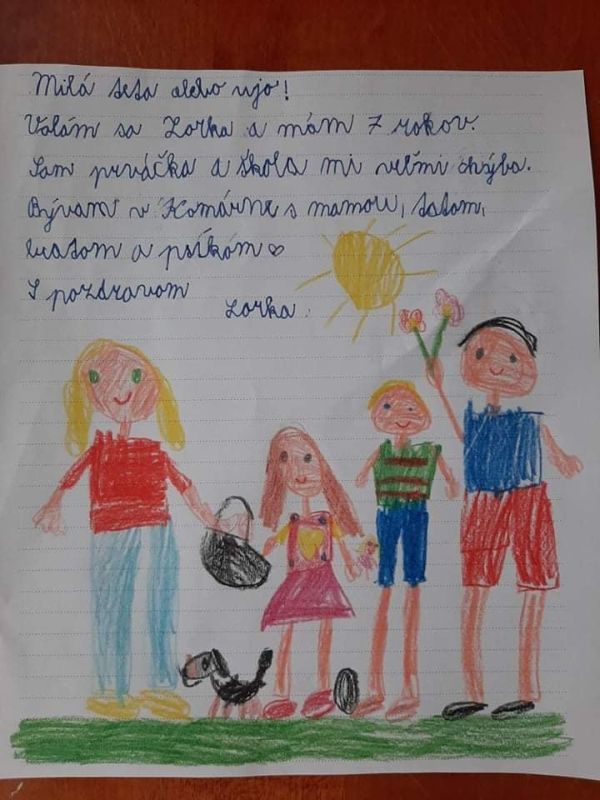 Milá teta alebo ujo!
Volám sa Zorka a mám 7 rokov.
Som prváčka a škola mi veľmi chýba.
Bývam v Komárne s mamou, tatom,
bratom a psíkom ♡
S pozdravom
Zorka.